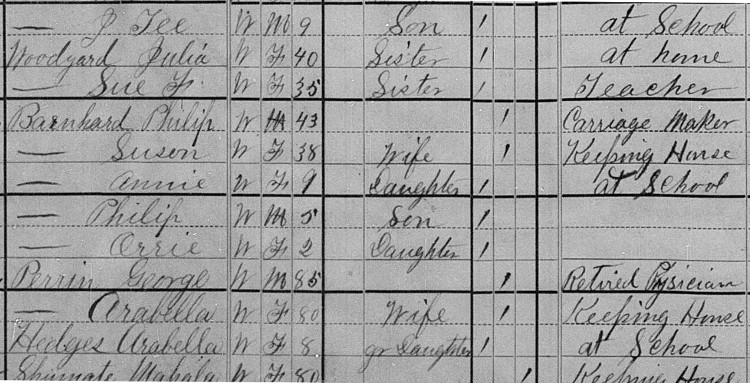 — J Tee W M 9 Son / at School
Woodyard Julia W F 40 Sister / at home
— Sue F. W F 35 Sister / Teacher
Barnhard Philip W M 43 / Carriage Maker
— Suson W F 38 Wife / Keeping House
— Annie W F 9 Daughter / at School
— Philip W M 5 Son /
— Orrie W F 2 Daughter /
Perrin George W M 85 / Retired Pysician
— Arabella W F 80 Wife / Keeping House
Hedges Arabella W F 8 gr Daughter / at School
Shumate Mahala W F 80 / Keeping House